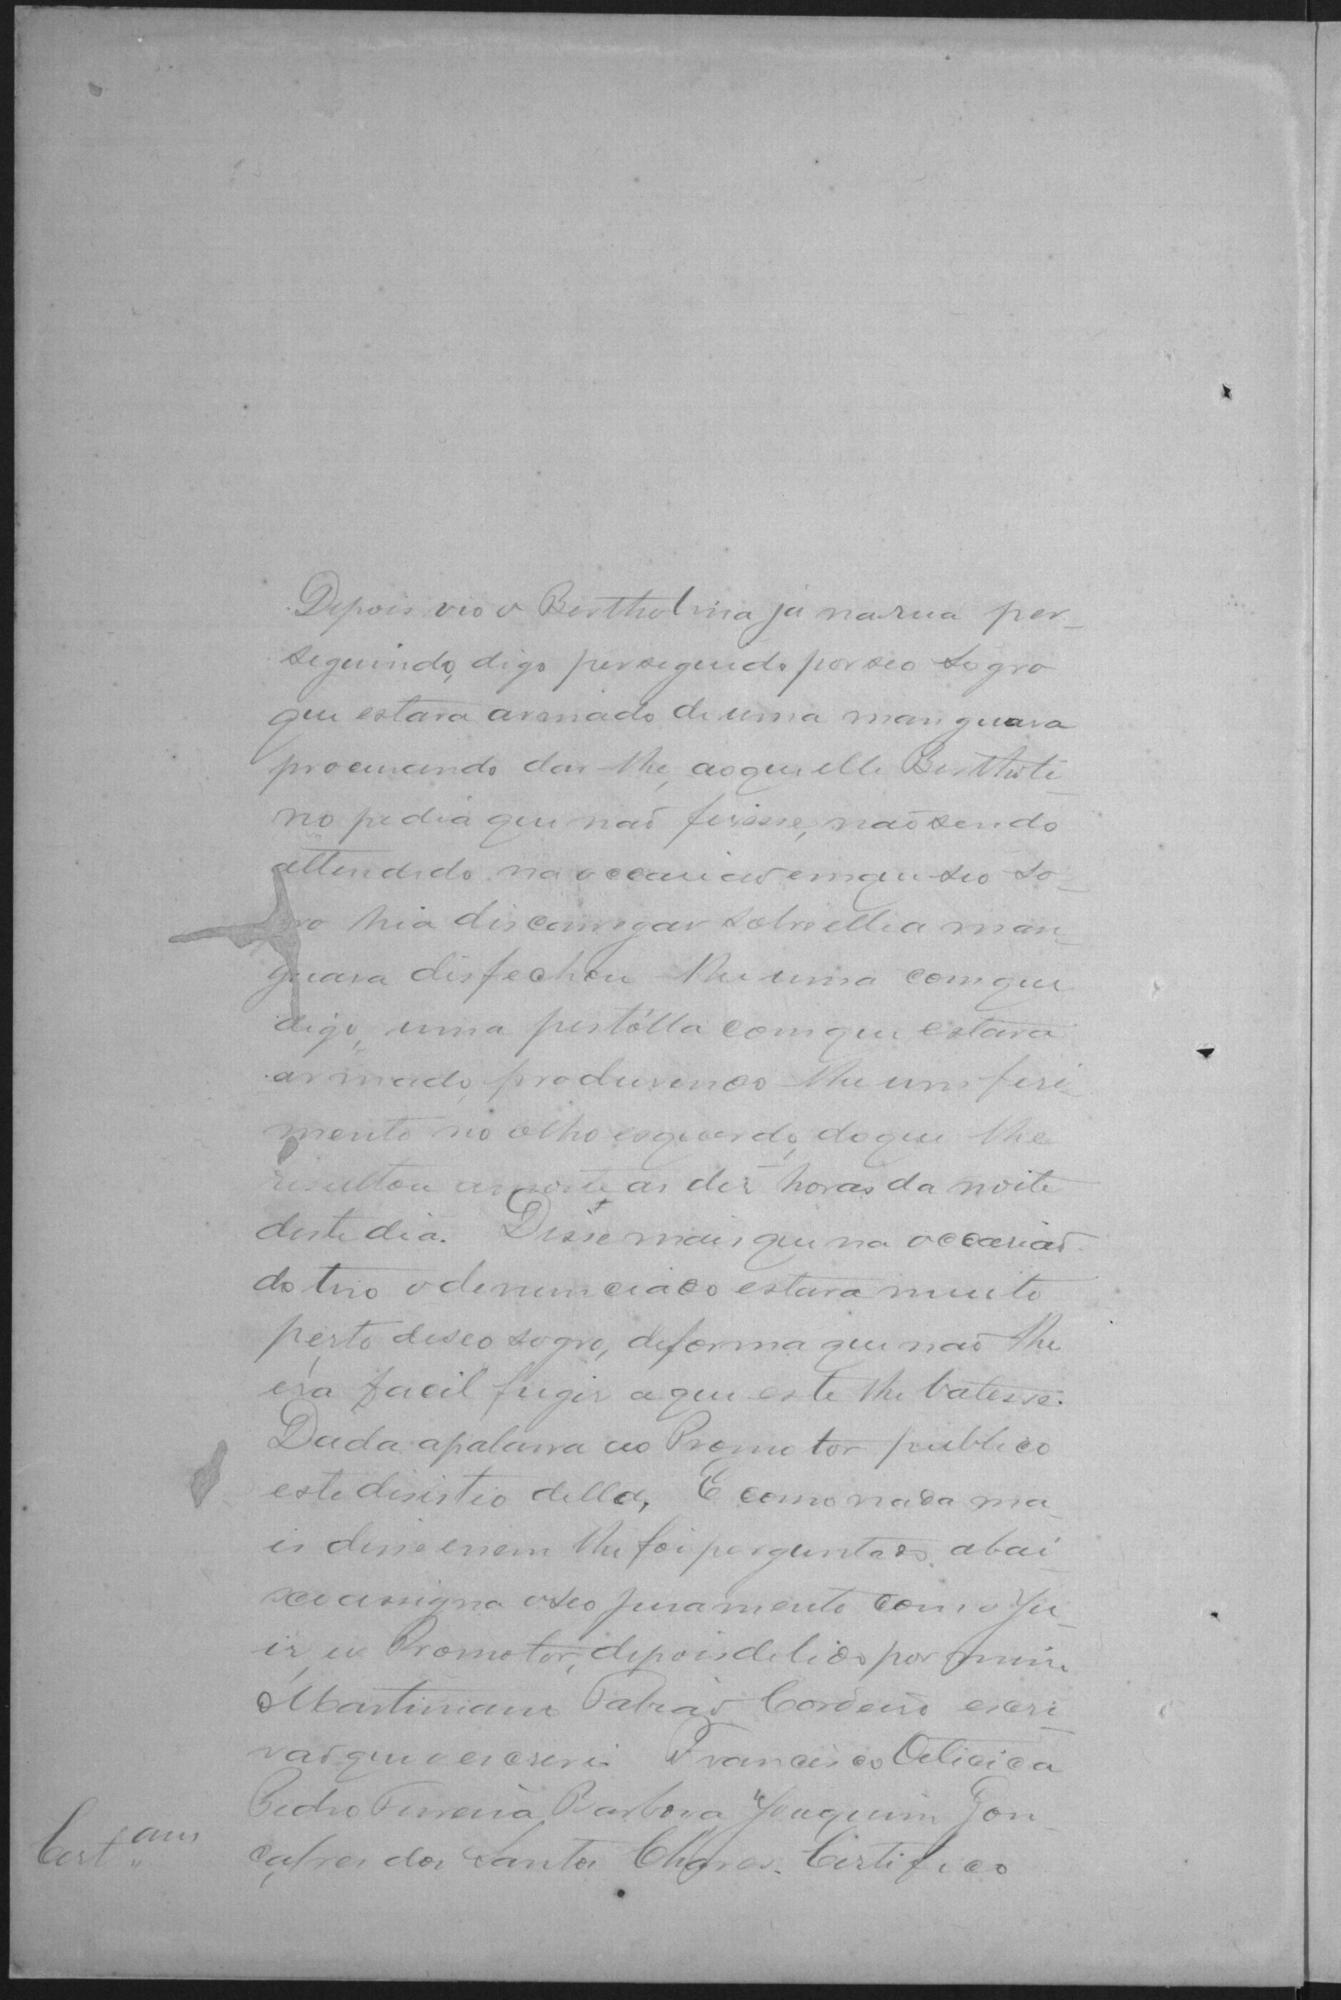 Depois vio o Bertholino já na rua per-
seguindo, digo perseguido por seo sogro
que estava armado de uma manguara
procurando dar-lhe, ao que elle Bertholi-
no pedia que naõ ferisse, naõ sendo
attendido na occasiaõ em que seo so-
gro hia discarregar sobre elle a man-
guara disfechou-lhe uma com que
digo, uma pistólla com que estava
armado, produzindo-lhe um feri-
mento no olho esquerdo, do que lhe
resultou a morte as dez horas da noite
deste dia. Disse mais que na occasiaõ
do tiro o denunciado estava muito
perto de seo sogro, de forma que naõ lhe
era facil fugir a que este lhe batesse.
Dada a palavra ao Promotor publico
este disistio della. E como nada ma-
is disse e nem lhe foi perguntado, abai-
xo assigna o seo juramento com o Ju-
iz, e o Promotor, depois de lido por mim
Martiniano Fabiaõ Cordeiro escri-
vaõ que o escrevi. Francisco Oiticica
Pedro Ferreira Barbosa Joaquim Gon-
çalves dos Santos Chaves. Certifico
Cert.am